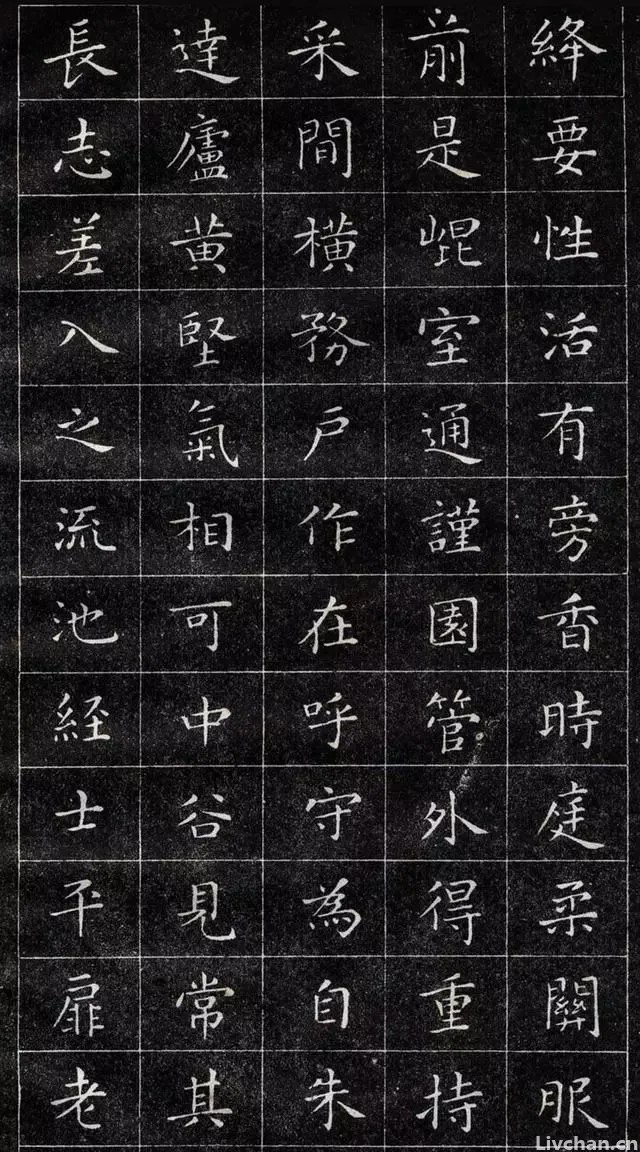 絳要性活有旁香時庭柔關服
前是崐室通謹園管外得重持
采間橫務戶作在呼守為自朱
達廬黄堅氣相可中谷見常其
長志差入之流池經士平扉老
Livchan.cn